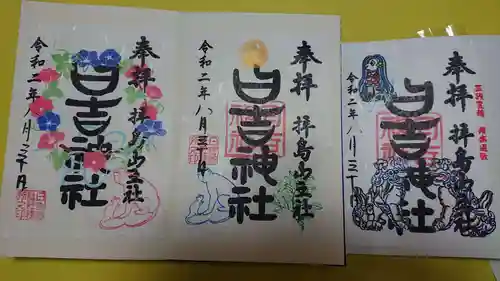 奉拝 拝島山王社
日吉神社
令和二年八月三十日
奉拝 拝島山王社
日吉神社
令和二年八月三十日
奉拝 拝島山王社
日吉神社
令和二年八月三十日